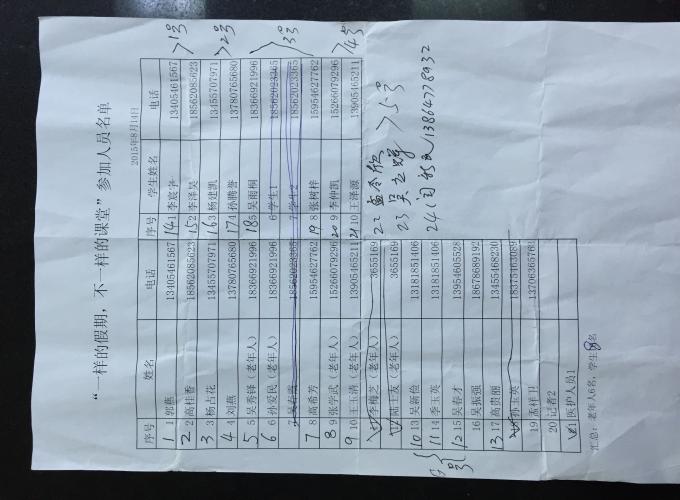 “一样的假期，不一样的课堂”参加人员名单
2015年8月14日
序号 姓名 电话 序号 学生姓名 电话
1 1 郭燕 13405461567 14 1 李宸宇 13405461567 >1号
2 2 高桂香 18562085623 15 2 李泽昊 18562085623
3 3 杨占花 13455707971 16 3 杨建凯 13455707971 >2号
4 4 刘燕 13780765680 17 4 孙腾誉 13780765680
5 5 吴秀铎（老年人） 18366921996 18 5 吴雨桐 18366921996 >3号
6 6 孙爱民（老年人） 18366921996 6 学生1 18562023365
7 吴春霞 18562023365 7 学生2 18562023365
7 8 高希芳 15954627762 19 8 张树梓 15954627762 >4号
8 9 张学武（老年人） 15266079296 20 9 李仲凯 15266079296
9 10 王玉清（老年人） 13905465211 21 10 王泽源 13905465211
李梅芝（老年人） 3655169 22 孟令欣 >5号
陆王友（老年人） 3655169 23 吴立
10 13 吴新俭 13181851406 24 13864778932
11 14 季玉英 13181851406
12 15 吴春才 13954605528
16 吴张强 18678689192
13 17 高贵丽 13455468230
孙玉英 18375463089
19 孟祥卫 1370636576
20 记者2
21 医护人员1
汇总：老年人6名，学生8名